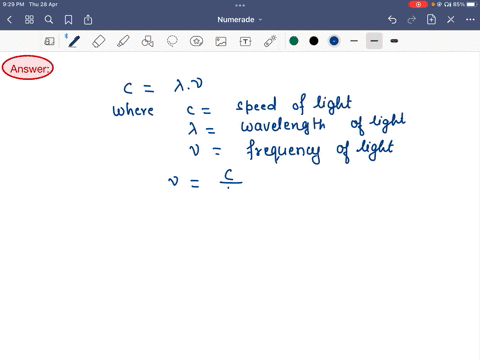 9:29 PM Thu 28 Apr
85%
Numerade
Answer:
c = λ.ν
where c = speed of light
λ = wavelength of light
ν = frequency of light
ν = c/